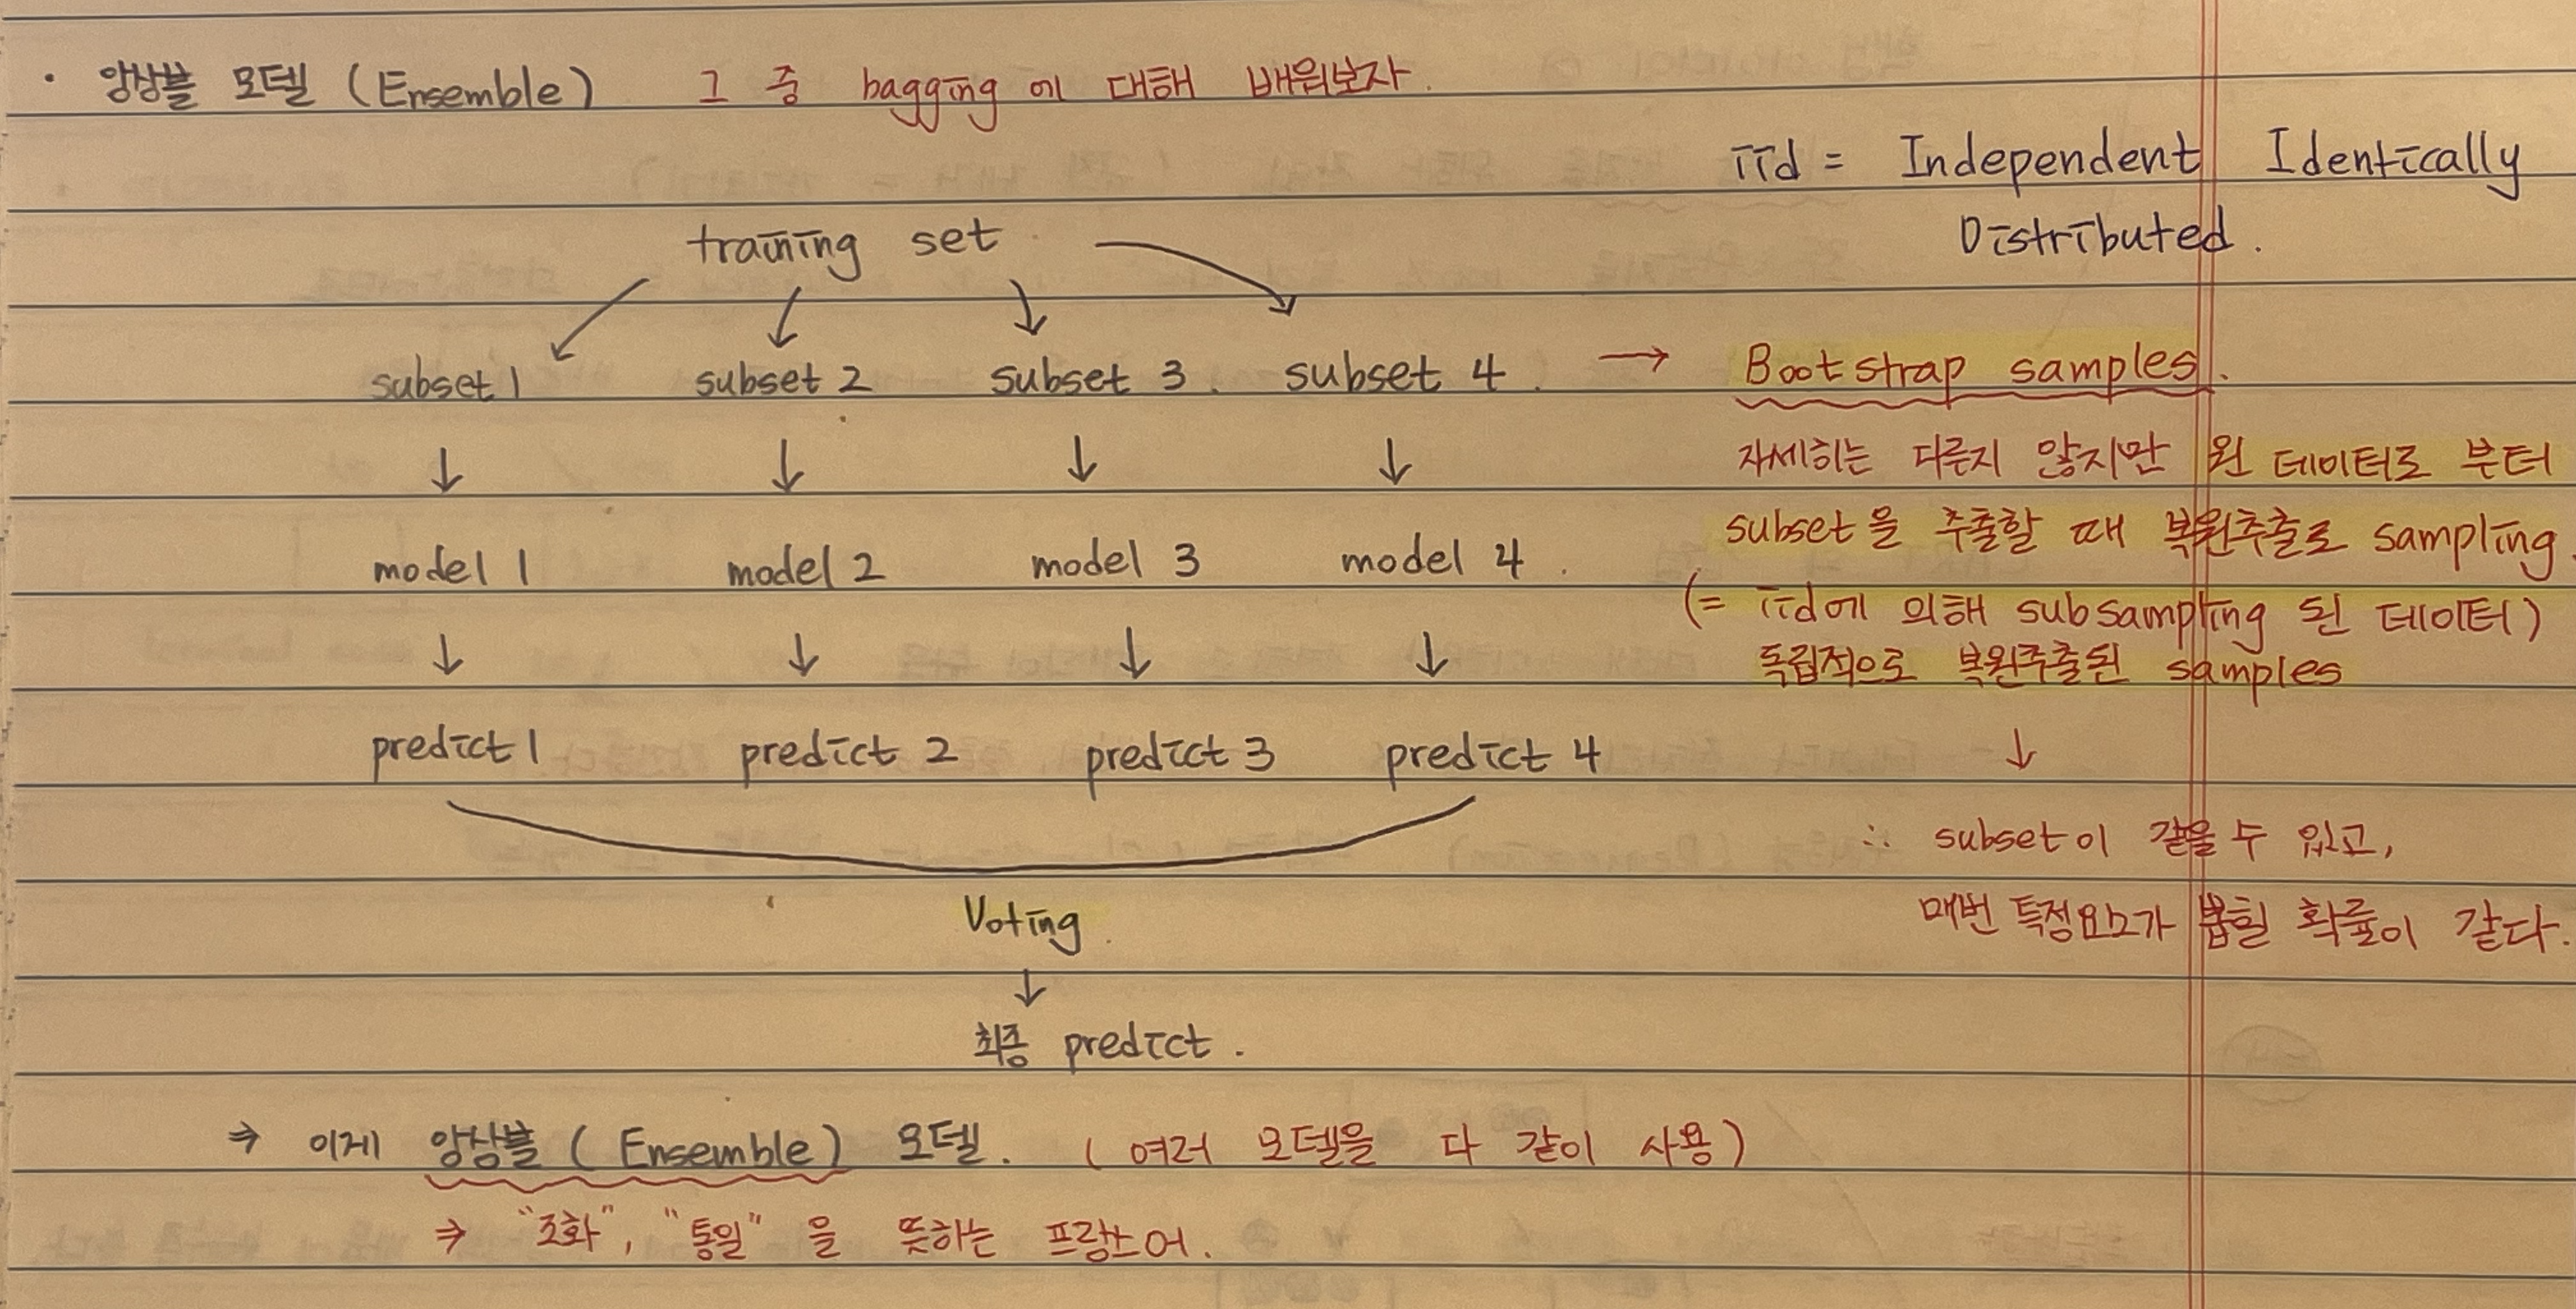 · 앙상블 모델 (Ensemble) 그 중 bagging 에 대해 배워보자.
iid = Independent Identically
Distributed.
training set
subset 1 subset 2 subset 3. subset 4. → Bootstrap samples.
자세히는 다룬지 않지만 원 데이터로 부터
subset을 추출할 때 복원추출로 sampling.
(= iid에 의해 subsampling 된 데이터)
독립적으로 복원추출된 samples
↓ ↓ ↓ ↓
model 1 model 2 model 3 model 4.
↓ ↓ ↓ ↓
predict 1 predict 2 predict 3 predict 4
↓
∴ subset이 같을 수 있고,
매번 특정요소가 뽑힐 확률이 같다.
Voting.
↓
최종 predict.
⇒ 이게 앙상블 ( Ensemble) 모델. ( 여러 모델을 다 같이 사용)
⇒ "조화", "통일" 을 뜻하는 프랑스어.